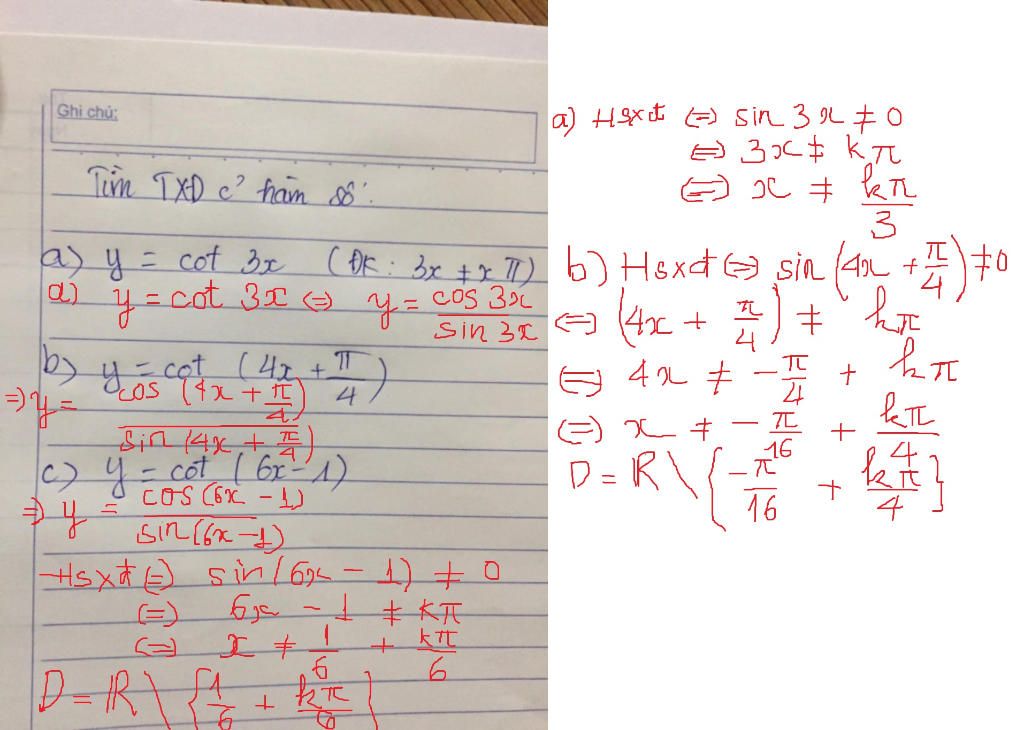 Ghi chú:
Tìm TXD c² hàm số:
a) y = cot 3x (ĐK: 3x ≠ x π)
a) y = cot 3x ⇔ y = cos 3x / sin 3x
b) y = cot (4x + π/4)
⇒ y = cos (4x + π/4) / sin (4x + π/4)
c) y = cot (6x - 1)
⇒ y = cos (6x - 1) / sin (6x - 1)
Hsxđ ⇔ sin (6x - 1) ≠ 0
⇔ 6x - 1 ≠ kπ
⇔ x ≠ 1/6 + kπ/6
D = ℝ \ {1/6 + kπ/6}
a) Hsxđ ⇔ sin 3x ≠ 0
⇔ 3x ≠ kπ
⇔ x ≠ kπ/3
b) Hsxđ ⇔ sin (4x + π/4) ≠ 0
⇔ (4x + π/4) ≠ kπ
⇔ 4x ≠ -π/4 + kπ
⇔ x ≠ -π/16 + kπ/4
D = ℝ \ {-π/16 + kπ/4}